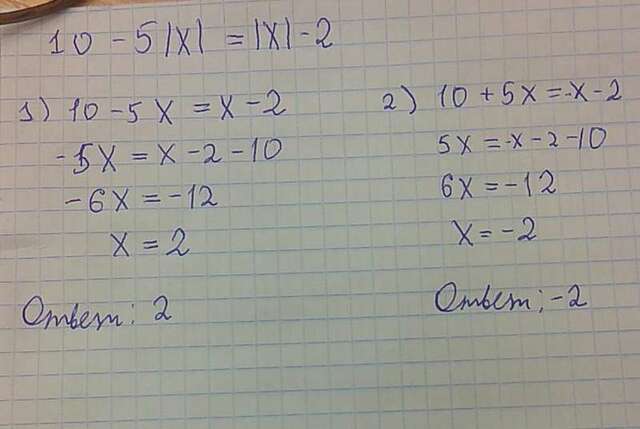 10 - 5|x| = |x| - 2
1) 10 - 5x = x - 2
-5x = x - 2 - 10
-6x = -12
x = 2
Ответ: 2
2) 10 + 5x = -x - 2
5x = -x - 2 - 10
6x = -12
x = -2
Ответ: -2